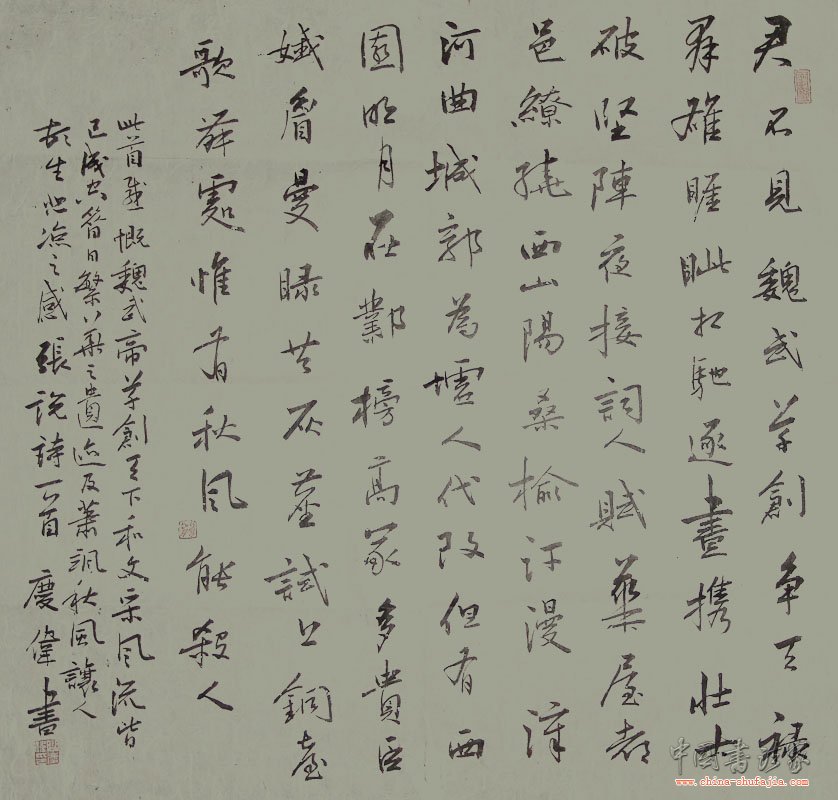 君不見魏武草創争天禄
群雄睚眦相馳逐晝攜壮士
破堅陣夜接詞人賦華屋都
邑繚繞西山陽桑榆汗漫漳
河曲城郭為墟人代改但有西
園明月在鄴榜高冢多貴臣
娥眉曼睩共灰塵試上銅臺
歌舞處惟有秋風能殺人
此首感慨魏武帝草創天下和文采風流皆
已成空昔日繁華之遺迹及蕭颯秋風讓人
頓生悲涼之感張說詩一首 慶偉書
中国书法家
www.china-shufajia.com